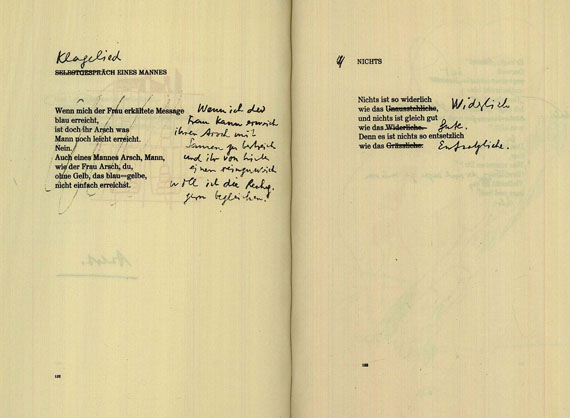 Klagelied
SELBSTGESPRÄCH EINES MANNES
Wenn mich der Frau erkältete Message
blau erreicht,
ist doch ihr Arsch was
Mann noch leicht erreicht.
Nein.
Auch eines Mannes Arsch, Mann,
wie der Frau Arsch, du,
ohne Gelb, das blau=gelbe,
nicht einfach erreichst.
Wenn ich der
Frau kann
ihren Arsch mit
und ihr von hinten
einen
will ich die Rechg.
gern begleichen.
NICHTS
Nichts ist so widerlich
wie das Unausstehliche, Widerlich
und nichts ist gleich gut
wie das Widerliche. Gute.
Denn es ist nichts so entsetzlich
wie das Grässliche. Entsetzliche.